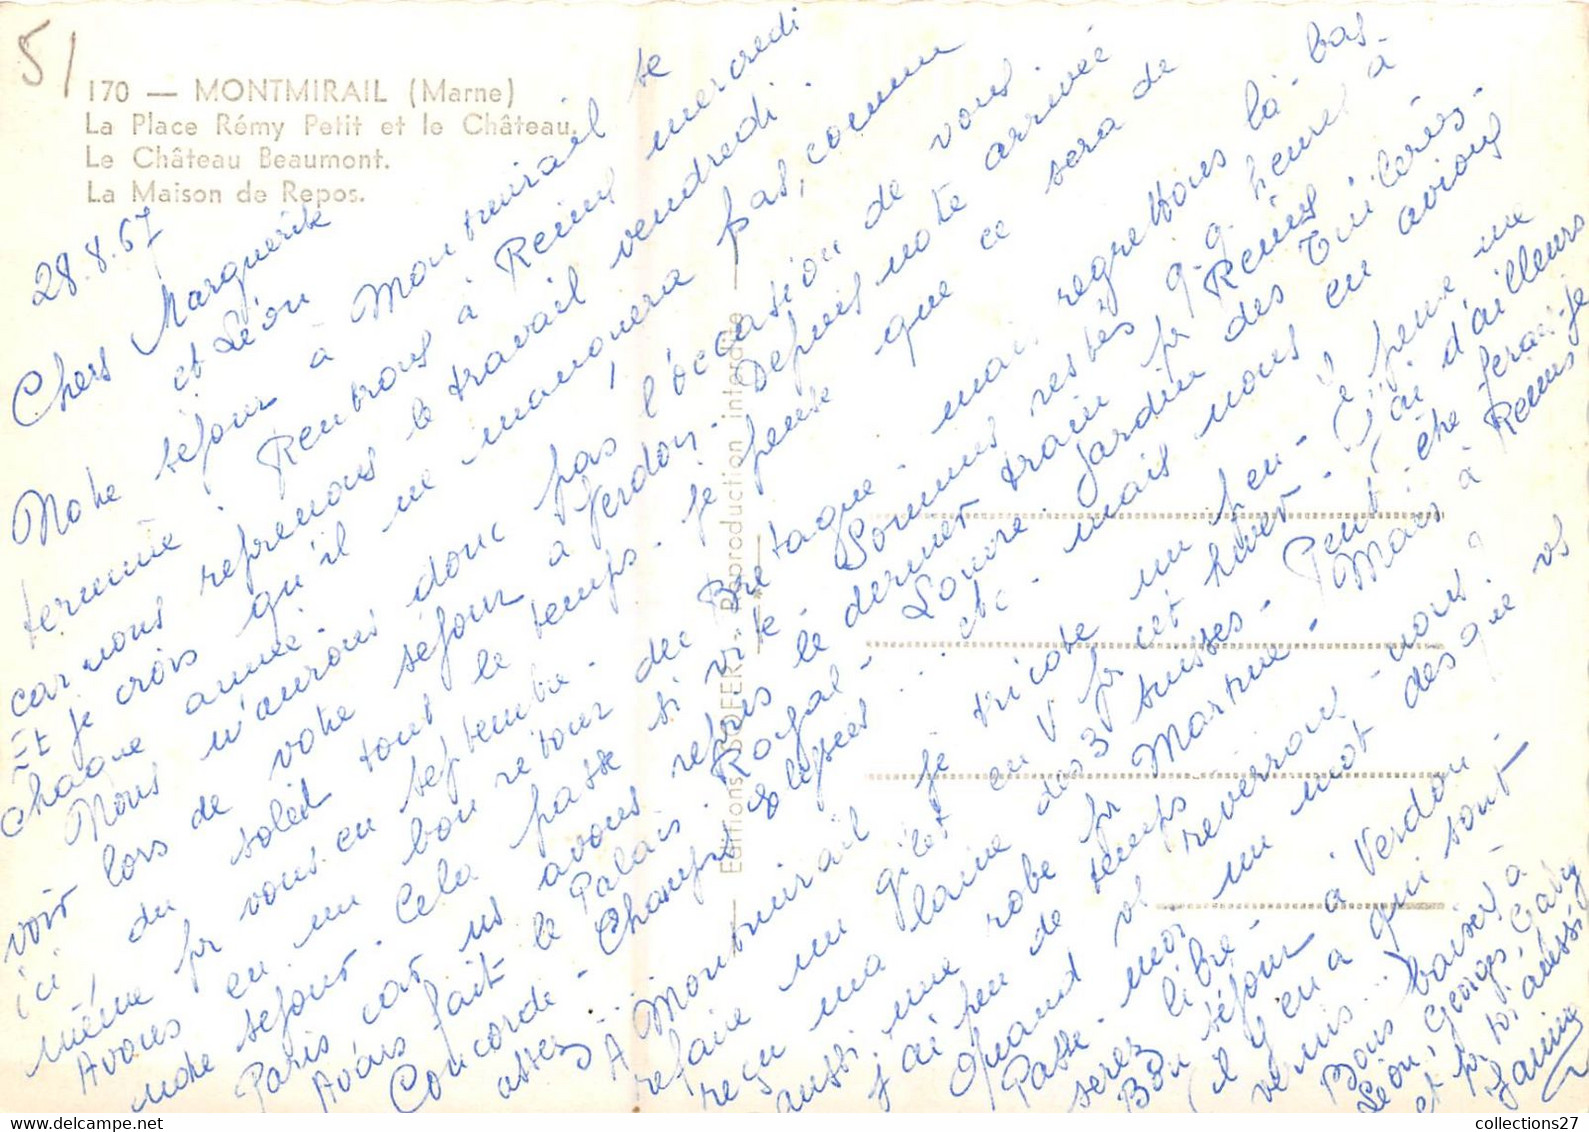 51
170 — MONTMIRAIL (Marne)
La Place Rémy Petit et le Château.
Le Château Beaumont.
La Maison de Repos.
28.8.67
Chers Marguerite
et Léon
Notre séjour à Montmirail se
termine. Rentrons à Reims mercredi
car nous reprenons le travail vendredi.
Et je crois qu'il ne manquera pas, comme
chaque année.
Nous n'aurons donc pas l'occasion de vous
voir lors de votre séjour à Verdon. Depuis notre arrivée
ici du soleil tout le temps. Je pense que ce sera de
même pr vous en septembre.
Avons eu un bon retour de Bretagne mais regrettons là-bas
notre séjour. Cela passe si vite. Sommes restés q.q. heures à
Paris car ns avons repris le dernier train pr Reims.
Avons fait le Palais Royal - Louvre Jardin des Tuileries -
Concorde - Champs Elysées... etc - mais nous en avions
assez...
A Montmirail je tricote un peu - Je pense me
refaire un gilet en V pr cet hiver - J'ai d'ailleurs
reçu ma laine des 3 suisses - Peut-être ferai-je
aussi une robe pr Martine - Mais à Reims
j'ai peu de temps.
Quand vs reverrons-nous ?
Passe-moi un mot dès que vs
serez libre.
Bon séjour à Verdon.
(il y en a qui sont
vernis...)
Bons baisers à
Léon, Georges, Gaby
et pr toi aussi
Janine
Editions SOFER - Reproduction interdite
collections27